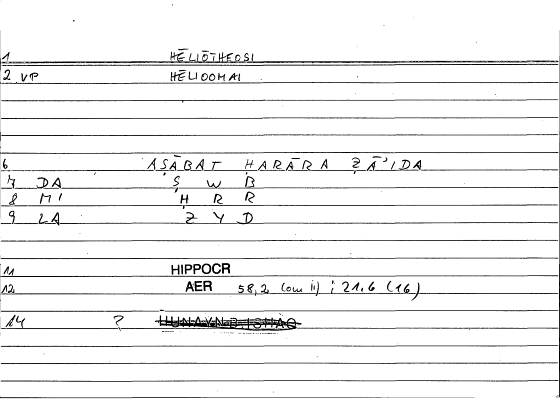 1 HĒLIŌTHEOSI
2 VP HĒLIOOMAI
6 AṢĀBAT ḤARĀRA ZĀ'IDA
7 DA Ṣ W B
8 MI Ḥ R R
9 LA Z Y D
11 HIPPOCR
12 AER 58,2 (om ii) ; 21.6 (16)
14 ? ḤUNAYN B. ISḤĀQ